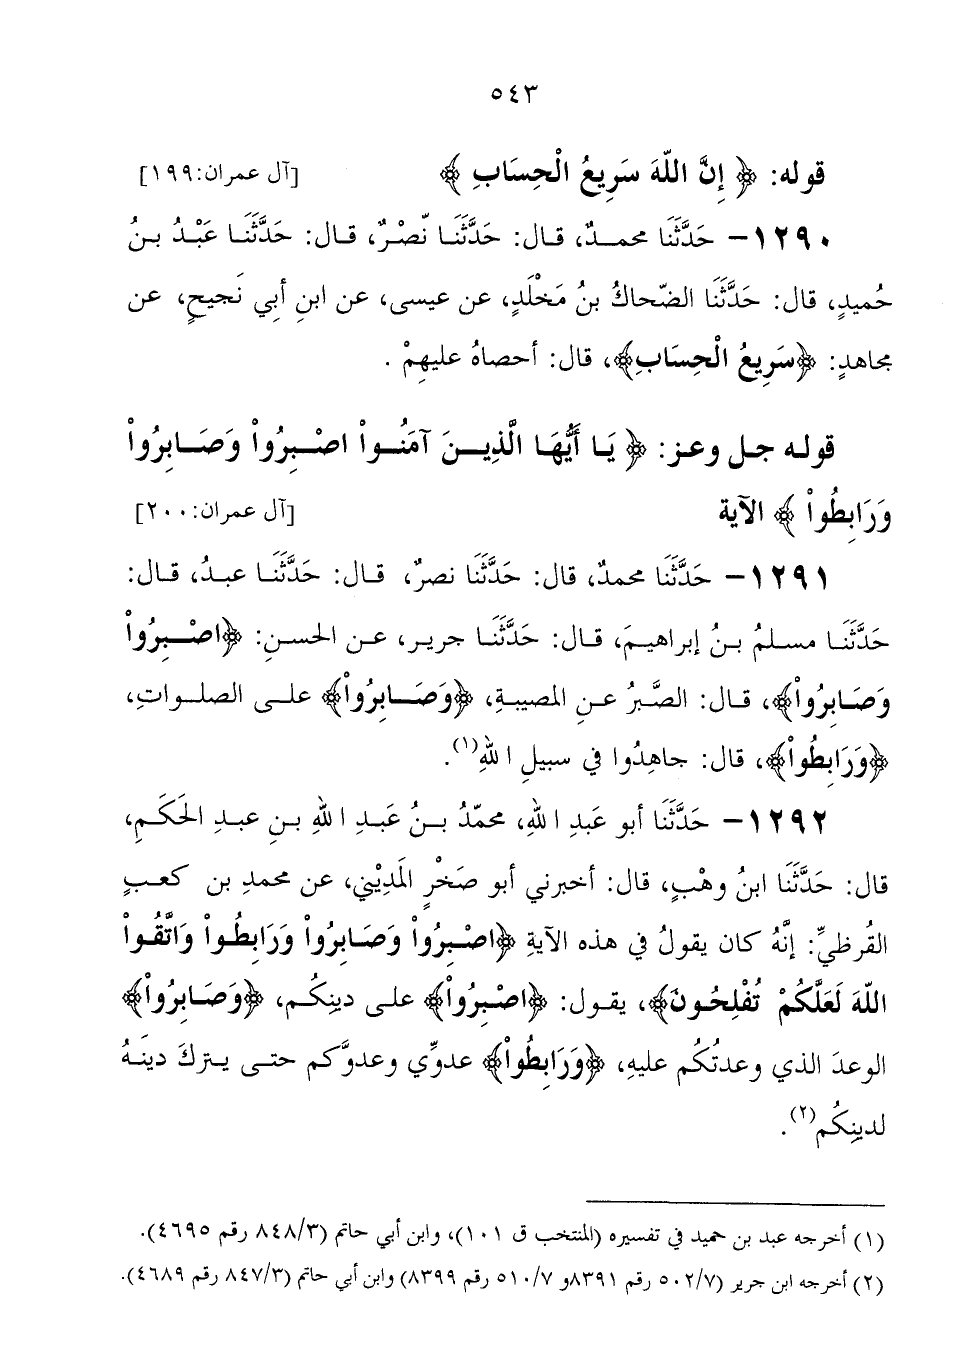 ٥٤٣
قوله: ﴿ إِنَّ اللّهَ سَرِيعُ الْحِسَابِ ﴾ [آل عمران:١٩٩]
١٢٩٠- حَدَّثَنَا محمدٌ، قال: حَدَّثَنَا نّصْرٌ، قال: حَدَّثَنَا عَبْدُ بنُ
حُميدٍ، قال: حَدَّثَنَا الضّحاكُ بنُ مَخْلَدٍ، عن عيسى، عن ابنِ أبي نَجيحٍ، عن
مجاهدٍ: ﴿سَرِيعُ الْحِسَابِ﴾، قال: أحصاهُ عليهِمْ .
قوله جل وعز: ﴿ يَا أَيُّهَا الَّذِينَ آمَنُواْ اصْبِرُواْ وَصَابِرُواْ
وَرَابِطُواْ ﴾ الآية [آل عمران:٢٠٠]
١٢٩١- حَدَّثَنَا محمدٌ، قال: حَدَّثَنَا نصرٌ، قال: حَدَّثَنَا عبدُ، قال:
حَدَّثَنَا مسلمُ بنُ إبراهيمَ، قال: حَدَّثَنَا جرير، عن الحسنِ: ﴿اصْبِرُواْ
وَصَابِرُواْ﴾، قال: الصَّبرُ عنِ المصيبةِ، ﴿وَصَابِرُواْ﴾ على الصلواتِ،
﴿وَرَابِطُواْ﴾، قال: جاهِدُوا في سبيلِ اللهِ(١).
١٢٩٢- حَدَّثَنَا أبو عَبدِ اللهِ، محمّدُ بنُ عَبدِ اللهِ بنِ عبدِ الحَكَمِ،
قال: حَدَّثَنَا ابنُ وهْبٍ، قال: أخبرني أبو صَخْرٍ المَدِيْني، عن محمدِ بن كعبٍ
القُرظيِّ: إنَّهُ كان يقولُ في هذه الآيةِ ﴿اصْبِرُواْ وَصَابِرُواْ وَرَابِطُواْ وَاتَّقُواْ
اللّهَ لَعَلَّكُمْ تُفْلِحُونَ﴾، يقول: ﴿اصْبِرُواْ﴾ على دينِكُم، ﴿وَصَابِرُواْ﴾
الوعدَ الذي وعدتُكُم عليهِ، ﴿وَرَابِطُواْ﴾ عدوِّي وعدوَّكم حتى يتركَ دينَهُ
لدينِكُم(٢).
(١) أخرجه عبد بن حميد في تفسيره (المنتخب ق ١٠١)، وابن أبي حاتم (٨٤٨/٣ رقم ٤٦٩٥).
(٢) أخرجه ابن جرير (٥٠٢/٧ رقم ٨٣٩١و ٥١٠/٧ رقم ٨٣٩٩) وابن أبي حاتم (٨٤٧/٣ رقم ٤٦٨٩).